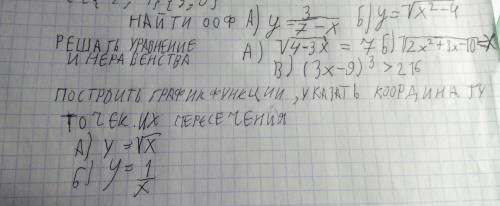 НАЙТИ ООФ А) y = 3/(7-x) Б) y = √x²-4
РЕШАТЬ УРАВНЕНИЕ И НЕРАВЕНСТВА А) √4-3X = 7 Б) √2x²+3x-10 = X
В) (3x-9)³ > 216
ПОСТРОИТЬ ГРАФИК ФУНКЦИИ, УКАЗАТЬ КООРДИНАТУ
ТОЧЕК ИХ ПЕРЕСЕЧЕНИЯ
А) y = √x
Б) y = 1/x